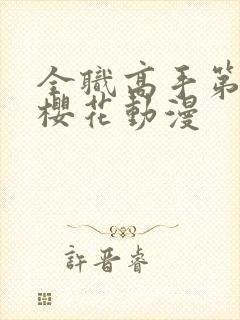 全職高手第
櫻花動漫
許晉睿